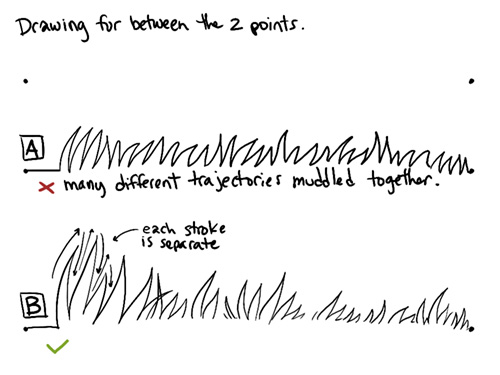 Drawing fur between the 2 points.
A
many different trajectories muddled together.
each stroke
is separate
B